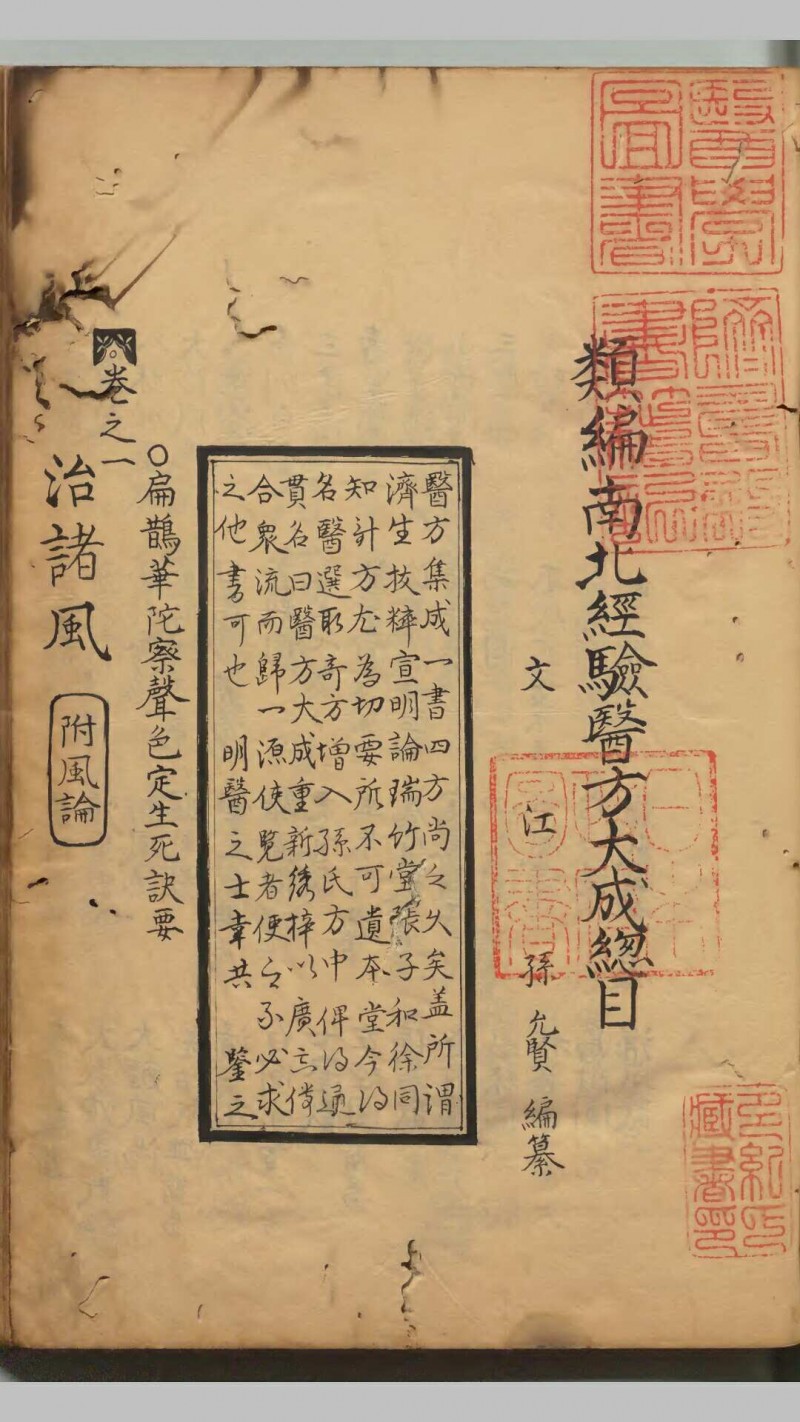 醫學圖書
躋壽殿書籍記
多紀氏藏書印
類編南北經驗醫方大成緫目
文江孫允賢編纂
醫方集成一書四方尚之久矣盖所謂
濟生拔粹宣明論瑞竹堂張子和徐同
知計方尤為切要所不可遺本堂今得
名醫選取奇方增入孫氏方中俾得通
貫名曰醫方大成重新綉梓以廣其傳
合衆流而歸一源使覧者便之不必求
之他書可也 明醫之士幸共 鑒之
○扁鵲華陀察聲色定生死訣要
卷之一
治諸風 附風論